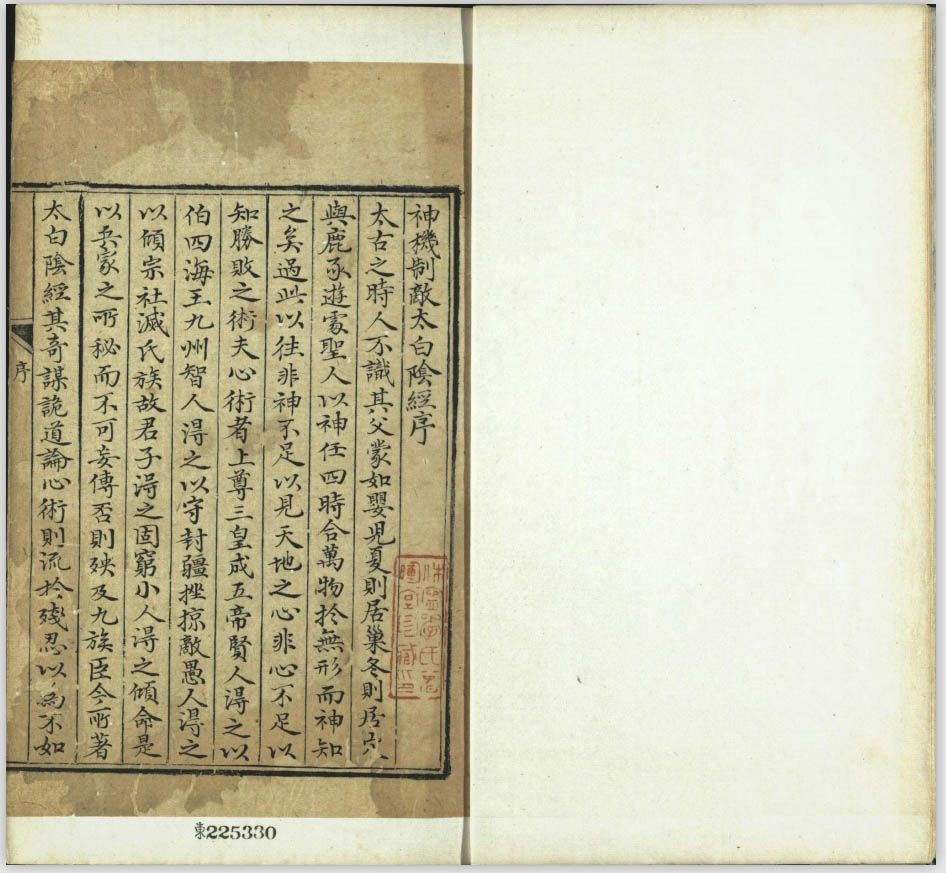 神機制敵太白陰經序
太古之時人不識其父蒙如嬰兒夏則居巢冬則居穴
與鹿豕遊處聖人以神任四時合萬物於無形而神知
之矣過此以往非神不足以見天地之心非心不足以
知勝敗之術夫心術者上尊三皇成五帝賢人淂之以
伯四海王九州智人淂之以守封疆挫掠敵愚人淂之
以傾宗社滅氏族故君子淂之固窮小人淂之傾命是
以兵家之所秘而不可妄傳否則殃及九族臣今所著
太白陰經其奇謀詭道論心術則流於殘忍以為不如
序
東225330